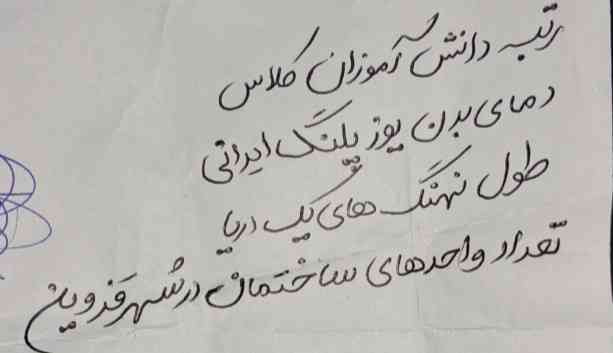 رتبه دانش آموزان کلاس
دمای بدن یوزپلنگ ایرانی
طول نهنگ های یک دریا
تعداد واحدهای ساختمان در شهر قزوین